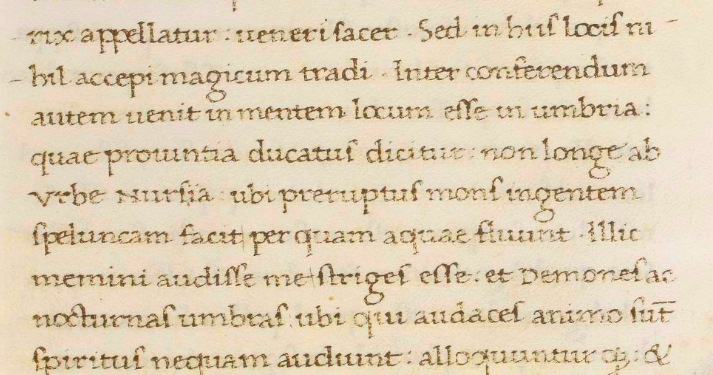 rix appellatur : ueneri sacer . Sed in hiis locis ni-
-hil accepi magicum tradi . Inter conferendum
autem uenit in mentem locum esse in umbria :
quae prouintia ducatus dicitur : non longe ab
vrbe Nursia : ubi preruptus mons ingentem
speluncam facit per quam aquae fluunt . Illic
memini audisse me striges esse : et Demones ac
nocturnas umbras ubi qui audaces animo sūt
spiritus nequam audiunt : alloquuntur qꝫ : &